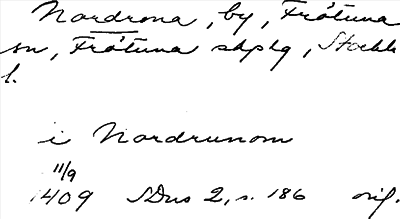 Nordrona, by, Frötuna
sn, Frötuna skplg, Stockh
l.
i Nordrunom
11/9
1409 SDns 2, s. 186 orig.